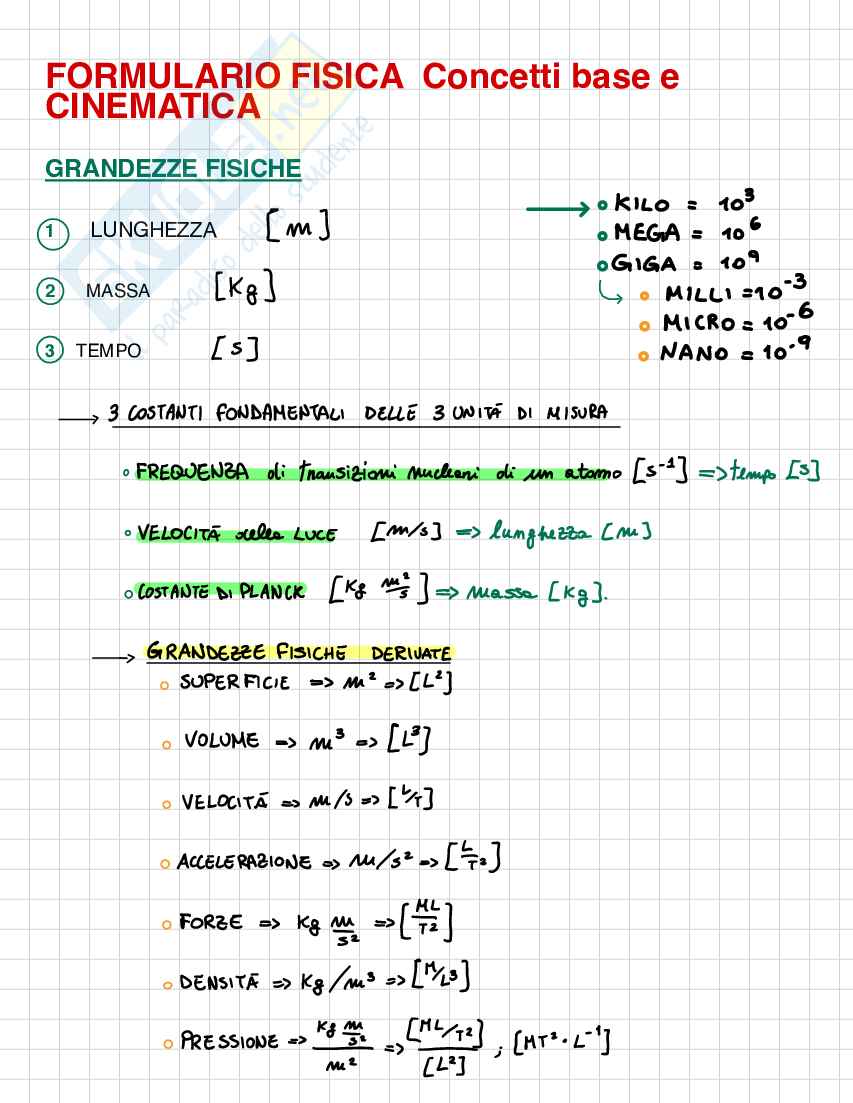 FORMULARIO FISICA Concetti base e
CINEMATICA
GRANDEZZE FISICHE
1 LUNGHEZZA [m]
2 MASSA [Kg]
3 TEMPO [s]
→ • KILO = 10³
• MEGA = 10⁶
• GIGA = 10⁹
↳ • MILLI = 10⁻³
• MICRO = 10⁻⁶
• NANO = 10⁻⁹
→ 3 COSTANTI FONDAMENTALI DELLE 3 UNITÀ DI MISURA
• FREQUENZA di transizioni nucleari di un atomo [s⁻¹] => tempo [s]
• VELOCITÀ della LUCE [m/s] => lunghezza [m]
• COSTANTE DI PLANCK [Kg m²/s] => massa [Kg].
→ GRANDEZZE FISICHE DERIVATE
• SUPERFICIE => m² => [L²]
• VOLUME => m³ => [L³]
• VELOCITÀ => m/s => [L/T]
• ACCELERAZIONE => m/s² => [L/T²]
• FORZE => Kg m/s² => [ML/T²]
• DENSITÀ => Kg/m³ => [M/L³]
• PRESSIONE => Kg m/s² / m² => [ML/T²] / [L²] ; [MT²·L⁻¹]
SKUOLA.net
il paradiso dello studente